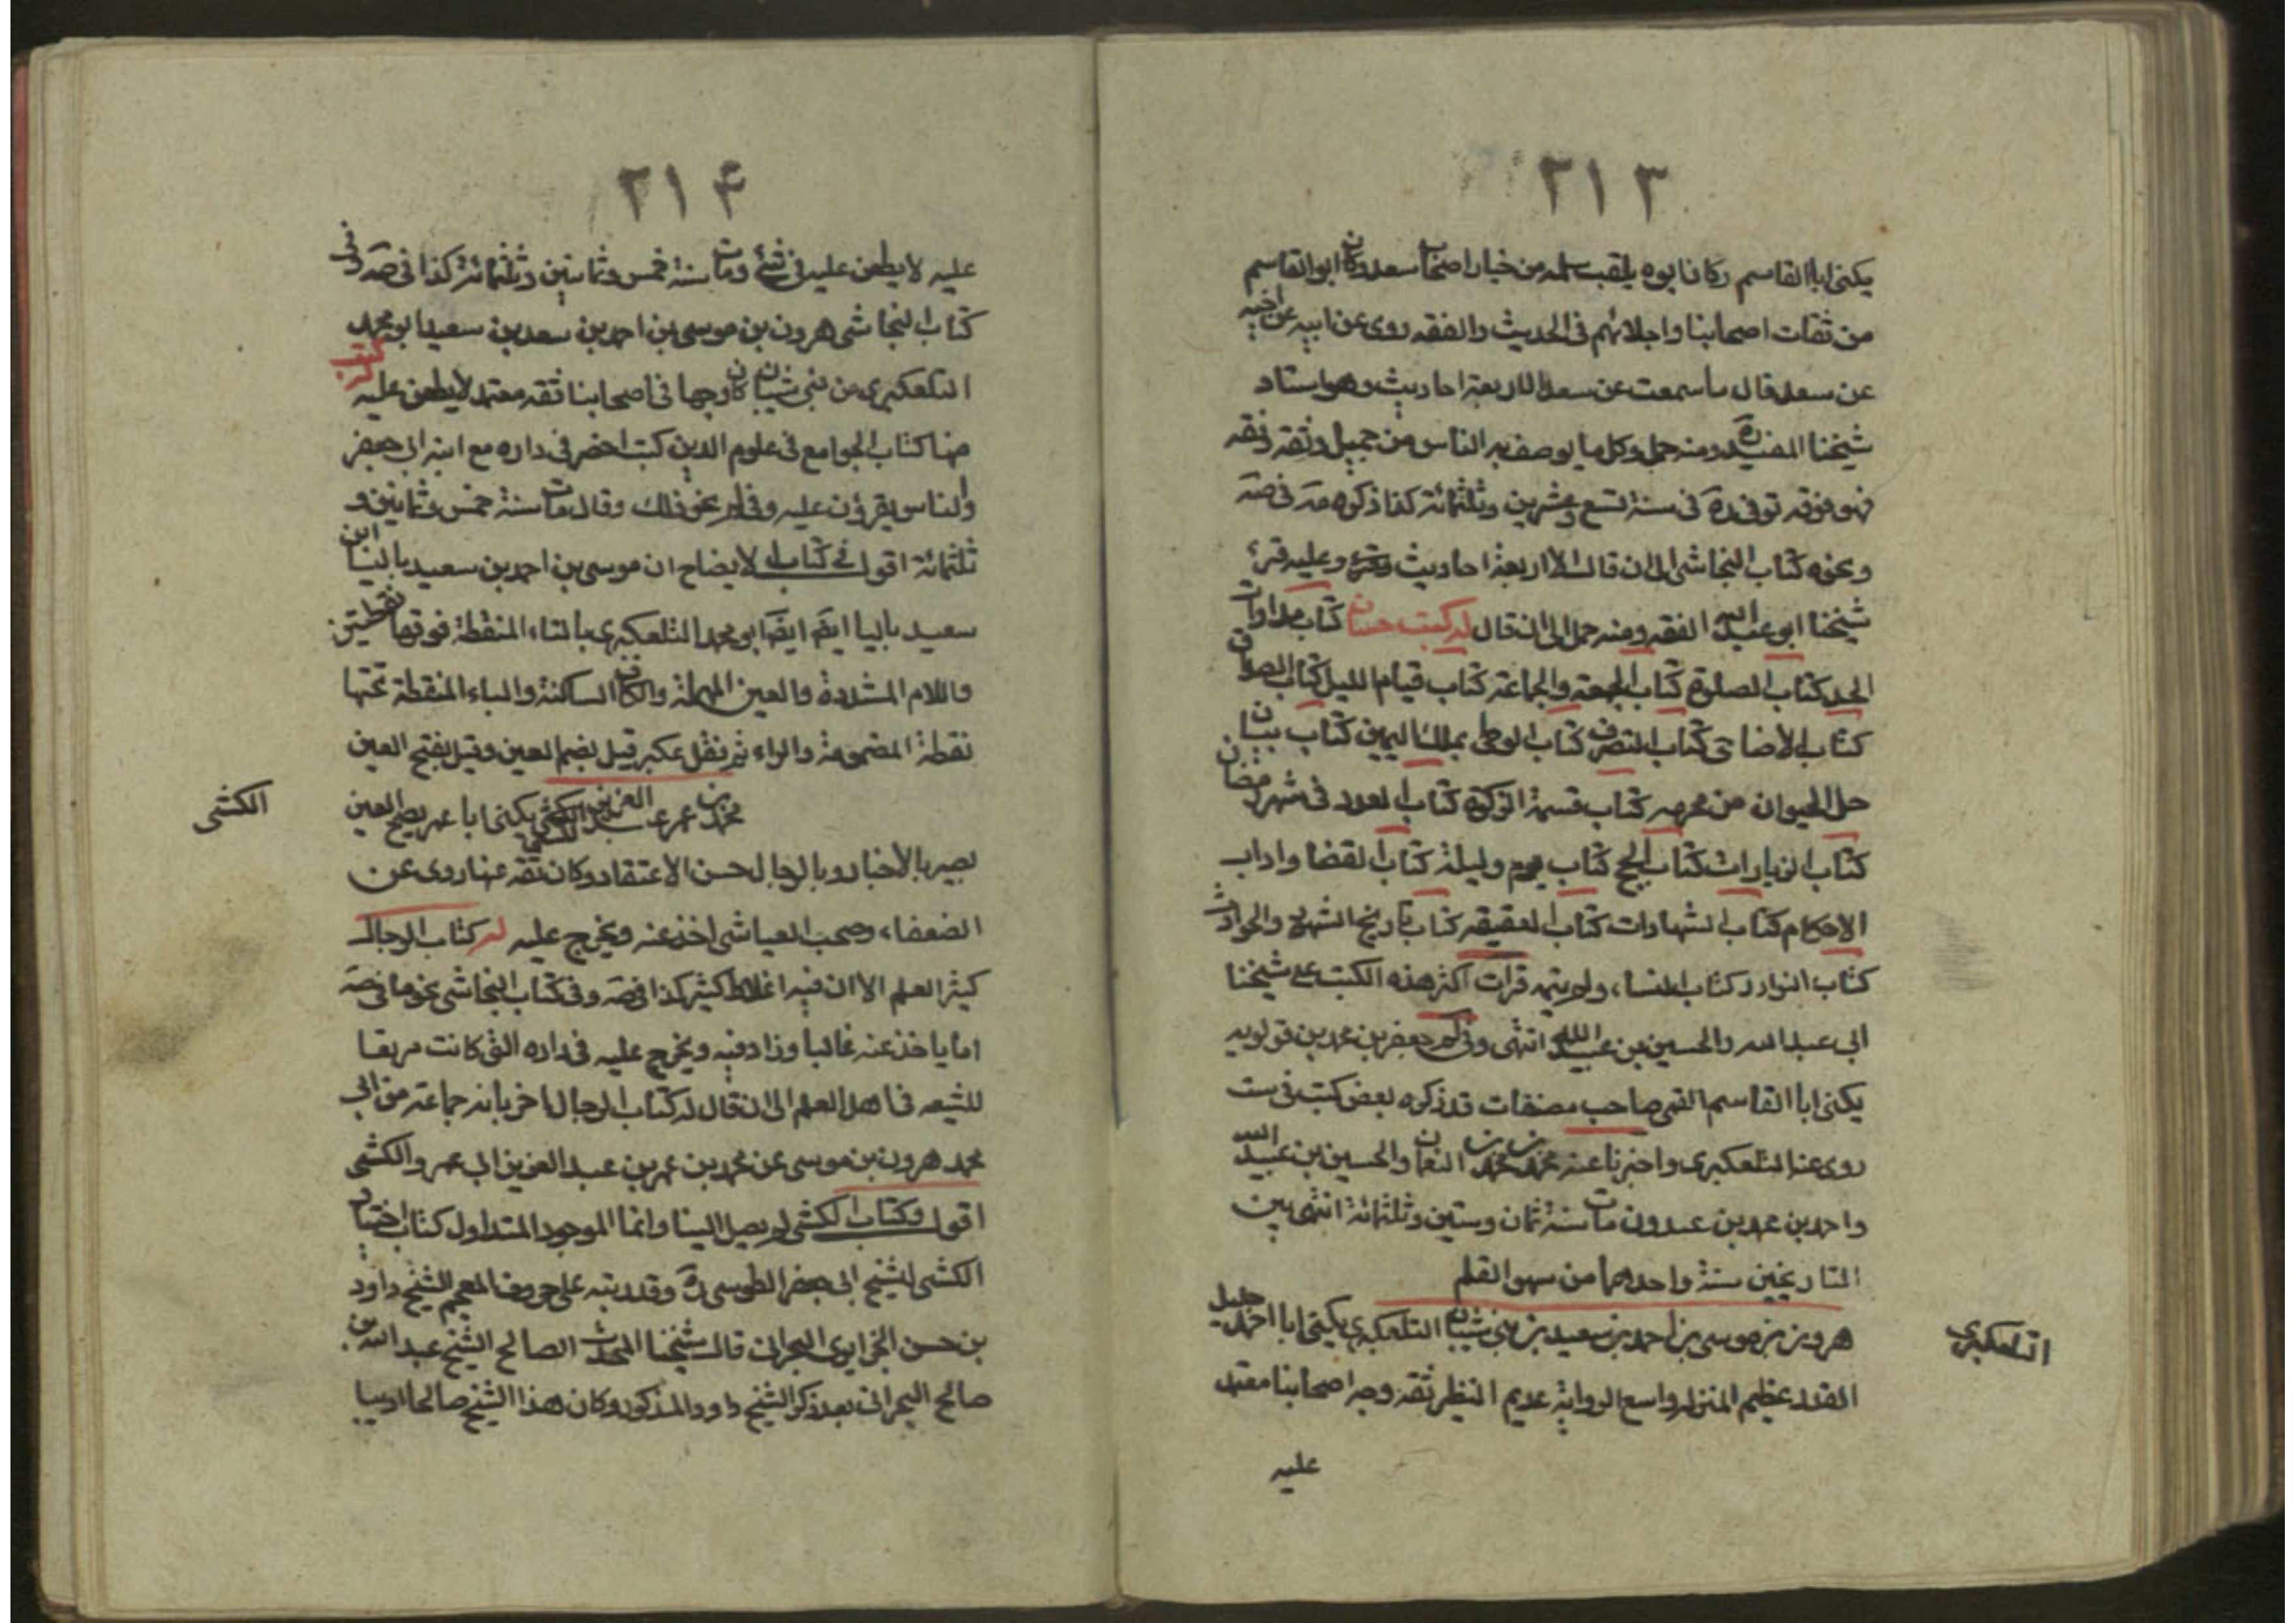 ٢١٣
يكنى ابا القاسم وكان ابوه يلقب مسلمه من خيار اصحاب سعد وكان ابو القاسم
من ثقات اصحابنا واجلائهم فى الحديث والفقه روى عن ابيه عن اخيه
عن سعد قال ما سمعت عن سعد الا اربعة احاديث وهو استاد
شيخنا المفيد ره ومنه حمل وكل ما يوصف به الناس من جميل وثقه وفقه
فهو فوقه توفى ره فى سنة تسع وعشرين وثلثمائة كذا ذكره مه فى صه
ونحوه كتاب النجاشى الى ان قال الا اربعة احاديث وعليه قرء
شيخنا ابو عبد الله الفقه ومنه حمل الى ان قال له كتب حسان كتاب مداواة
الجسد كتاب الصلوة كتاب الجمعة والجماعة كتاب قيام الليل كتاب الصداق
كتاب الاضاحى كتاب الصرف كتاب الوطى بملك اليمين كتاب بيان
حل الحيوان من محرمه كتاب قسمة الزكوة كتاب العدد فى شهر رمضان
كتاب الزيارات كتاب الحج كتاب يوم وليلة كتاب القضا واداب
الاحكام كتاب الشهادات كتاب العقيقه كتاب تاريخ الشهور والحوادث
كتاب النوادر كتاب النساء ولم يتمه قرات اكثر هذه الكتب على شيخنا
ابى عبد الله والحسين بن عبيد الله انتهى وفى لم جعفر بن محمد بن قولويه
يكنى ابا القاسم القمى صاحب مصنفات قد ذكره بعض كتبه فى ست
روى عنه التلعكبرى واخبرنا عنه محمد بن محمد بن النعمان والحسين بن عبيد الله
واحمد بن عبدون مات سنة ثمان وستين وثلثمائة انتهى بين
التاريخين سنة واحدهما من سهو القلم
هرون بن موسى بن احمد بن سعيد بن بنى شيبان التلعكبرى يكنى ابا احمد جليل
القدر عظيم المنزله واسع الرواية عديم النظير ثقه وجه اصحابنا معتمد
التلعكبرى
عليه
٢١۴
عليه لا يطعن عليه فى شئ ومات سنة خمس وثمانين وثلثمائة كذا فى صه وفى
كتاب النجاشى هرون بن موسى بن احمد بن سعد بن سعيد ابو محمد
التلعكبرى من بنى شيبان كان وجها فى اصحابنا ثقه معتمد لا يطعن عليه كتب
منها كتاب الجوامع فى علوم الدين كنت احضر فى داره مع ابنه ابى جعفر
والناس يقرؤن عليه وفى لم نحو ذلك وقال مات سنة خمس وثمانين و
ثلثمائة اقول فى كتاب الايضاح ان موسى بن احمد بن سعيد باليا ابن
سعيد باليا ايضا ايضا ابو محمد التلعكبرى بالتاء المنقطة فوقها نقطتين
واللام المشددة والعين المهملة والكاف الساكنة والباء المنقطة تحتها
نقطة المضمومة والراء ثم نقل عكبر قيل بضم العين وقيل بفتح العين
محمد بن عمر بن عبد العزيز الكشى يكنى ابا عمر بفتح العين
الكشى
بصير بالاخبار وبالرجال حسن الاعتقاد وكان ثقه عينا روى عن
الضعفاء وصحب العياشى اخذ عنه وتخرج عليه له كتاب الرجال
كثير العلم الا ان فيه اغلاط كثير كذا فى صه وفى كتاب النجاشى نحو ما فى صه
اما ياخذ عنه غالبا وزاد فيه وتخرج عليه فى داره التى كانت مرتعا
للشيعه فى اهل العلم الى ان قال له كتاب الرجال اخبر بانه جماعة من ابى
محمد هرون بن موسى عن محمد بن عمر بن عبد العزيز ابى عمرو الكشى
اقول وكتاب الكشى لم يصل الينا وانما الموجود المتداول كتاب اختيار
الكشى للشيخ ابى جعفر الطوسى ره وقد رتبه على حروف المعجم الشيخ داود
بن حسن الجزايرى البحرانى قال شيخنا المحدث الصالح الشيخ عبد الله بن
صالح البحرانى بعد ذكر الشيخ داود المذكور وكان هذا الشيخ صالحا اديبا